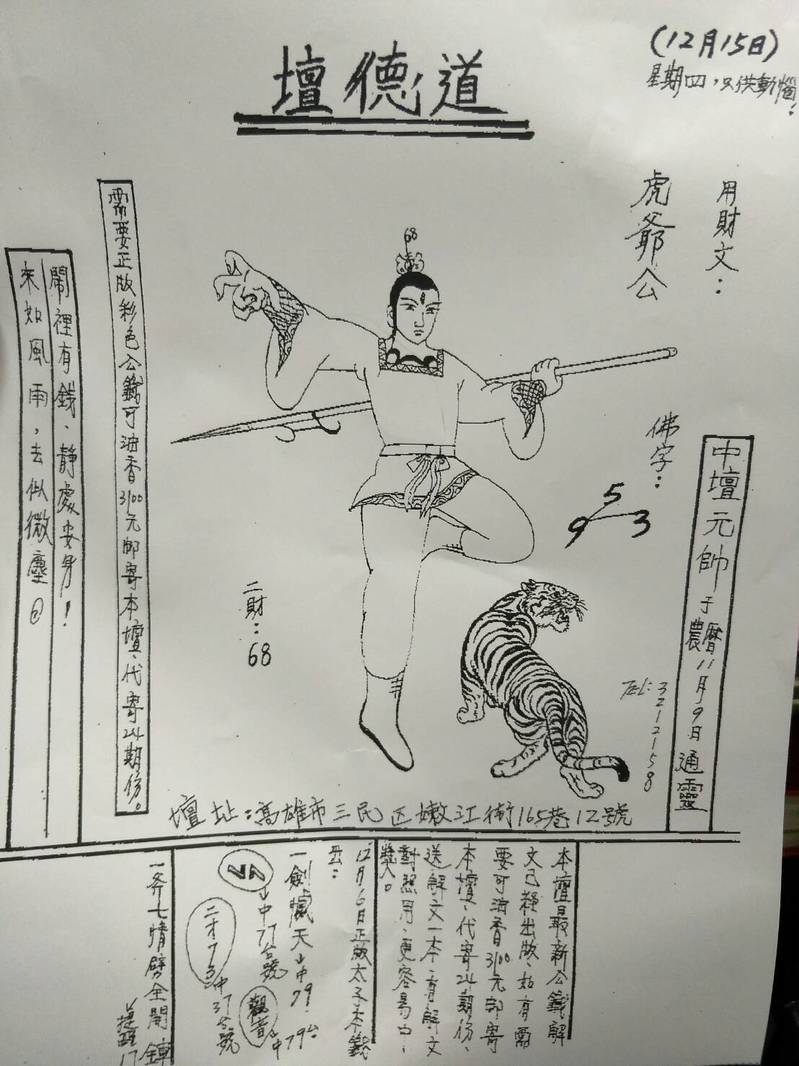 (12月15日)
星期四，只供動惱！
道德壇
用財文：
虎爺公
佛字：
5
9 3
中壇元帥于農曆11月9日通靈
TEL：3212158
68
二財：68
需要正版彩色公籤可油香3100元郵寄本壇、代寄24期份。
鬧裡有錢、靜處安身！
來如風雨，去似微塵@
壇址：高雄市三民区嫩江街165巷12號
本壇最新公籤解
文已經出版、如有需
要可油香3100元郵寄
本壇、代寄24期份、
送解文一本、有解文
對照用、更容易中、
獎入。
12月6日正版太子本籤
云：
一劍憾天↓中79'
↓中77台號
觀音↓中79台
二才73中37台號
一斧七情劈全開鋛